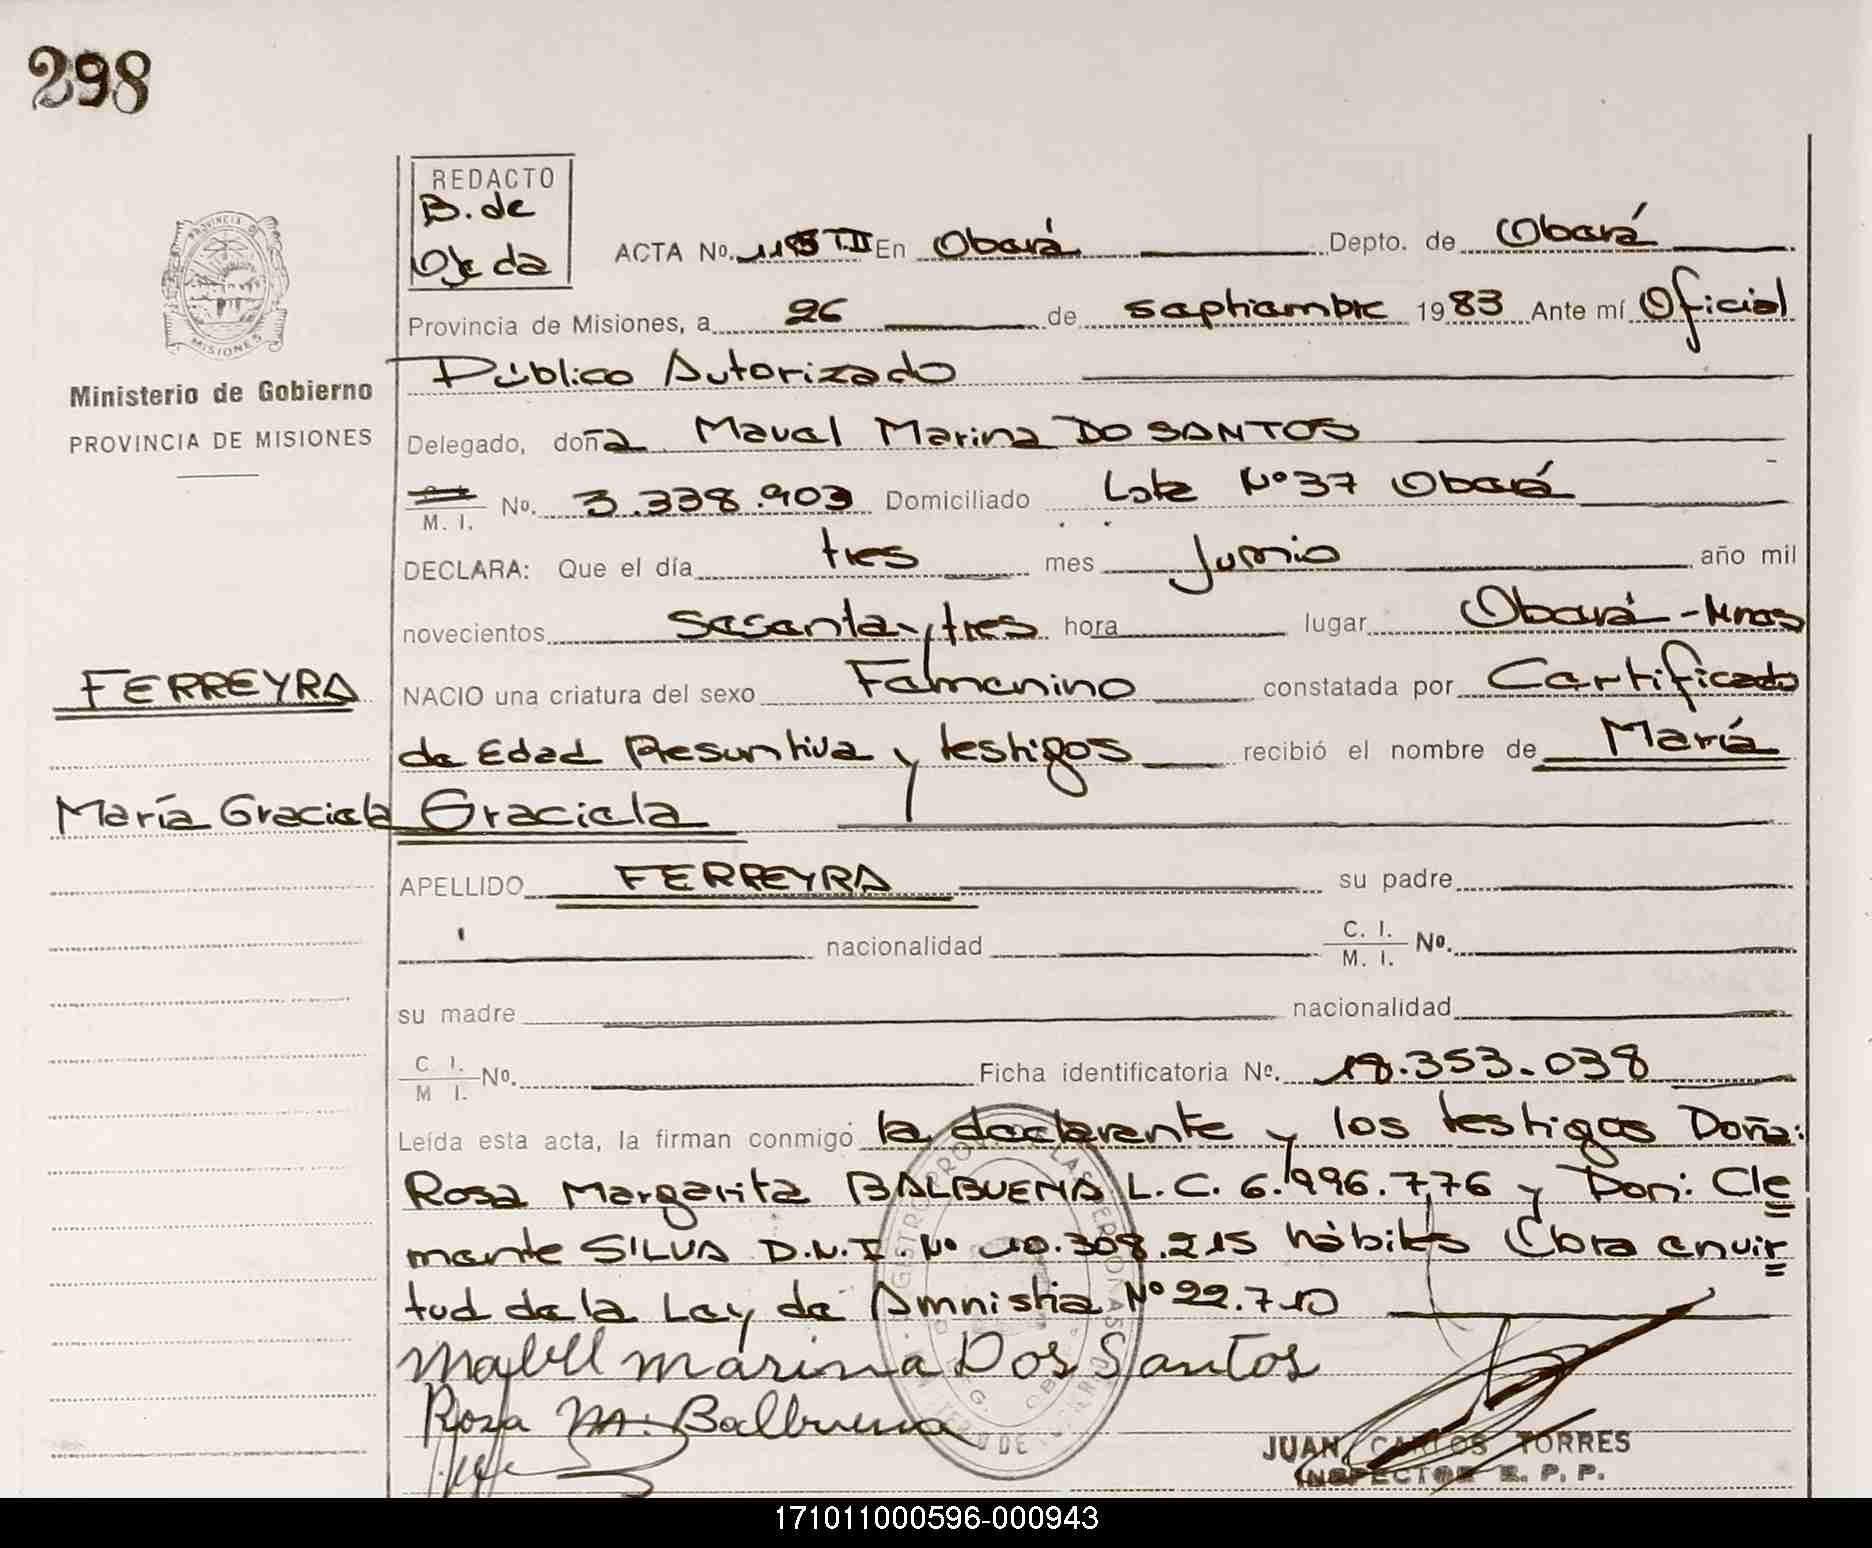 298
REDACTO
B. de
Ojeda
ACTA No. 115 T.II En Oberá Depto. de Oberá
Provincia de Misiones, a 26 de septiembre 1983 Ante mí Oficial
Público Autorizado
PROVINCIA DE
MISIONES
Ministerio de Gobierno
PROVINCIA DE MISIONES
Delegado, doña Mavel Marina DO SANTOS
M. I. No. 3.338.903 Domiciliado Lote Nº 37 Oberá
DECLARA: Que el día tres mes Junio año mil
novecientos sesenta y tres hora lugar Oberá - Mnes
FERREYRA
NACIO una criatura del sexo Femenino constatada por Certificado
de Edad Presuntiva y testigos recibió el nombre de María
María Graciela
Graciela
APELLIDO FERREYRA su padre
nacionalidad C. I. M. I. No.
su madre nacionalidad
C. I. M I. No. Ficha identificatoria No. 18.353.038
Leída esta acta, la firman conmigo la declarante y los testigos Doña:
Rosa Margarita BALBUENA L.C. 6.996.776 y Don: Cle
mente SILVA D.N.I. Nº 10.308.215 hábiles Obra en vir
tud de la Ley de Amnistia Nº 22.710
Mabell marina Dos Santos
Rosa M. Balbuena
JUAN CARLOS TORRES
INSPECTOR R. P. P.
171011000596-000943